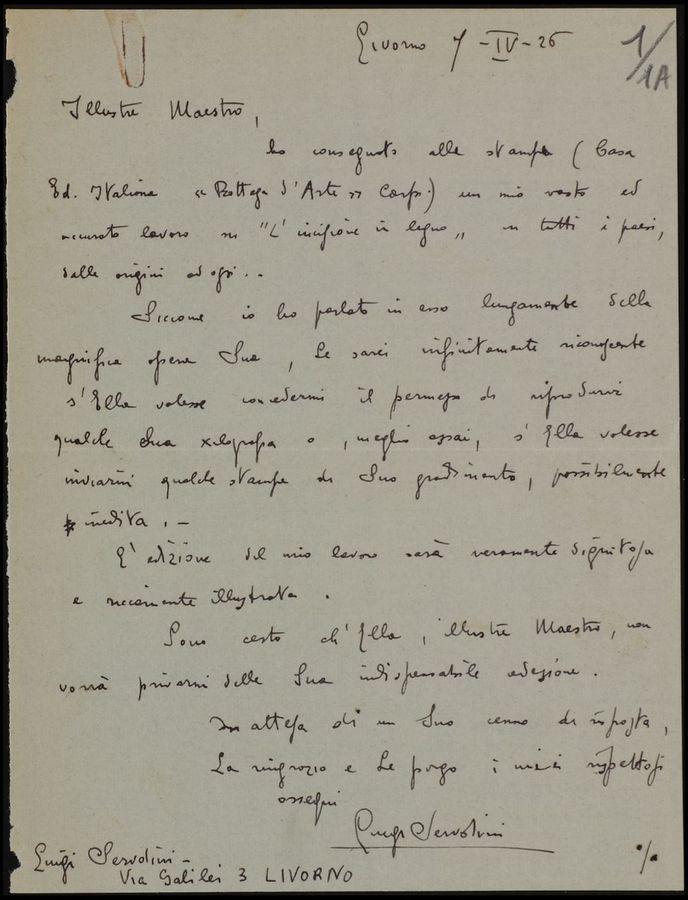 Livorno 7-IV-26
1/1A
Illustre Maestro,
ho consegnato alle stampe (Casa
Ed. Italiana « Bottega d'Arte » Corsp.) un mio vasto ed
accurato lavoro su "L'incisione in legno„ in tutti i paesi,
dalle origini ad oggi..
Siccome io ho parlato in esso lungamente della
magnifica opera Sua, Le sarei infinitamente riconoscente
s'Ella volesse concedermi il permesso di riprodurre
qualche Sua xilografia o, meglio assai, s'Ella volesse
inviarmi qualche stampa di Suo gradimento, possibilmente
inedita. -
L'edizione del mio lavoro sarà veramente dignitosa
e riccamente illustrata.
Sono certo ch'Ella, illustre Maestro, non
vorrà privarmi della Sua indispensabile adesione.
In attesa di un Suo cenno di risposta,
La ringrazio e Le porgo i miei rispettosi
ossequi
Luigi Servolini
Luigi Servolini -
Via Galilei 3 LIVORNO